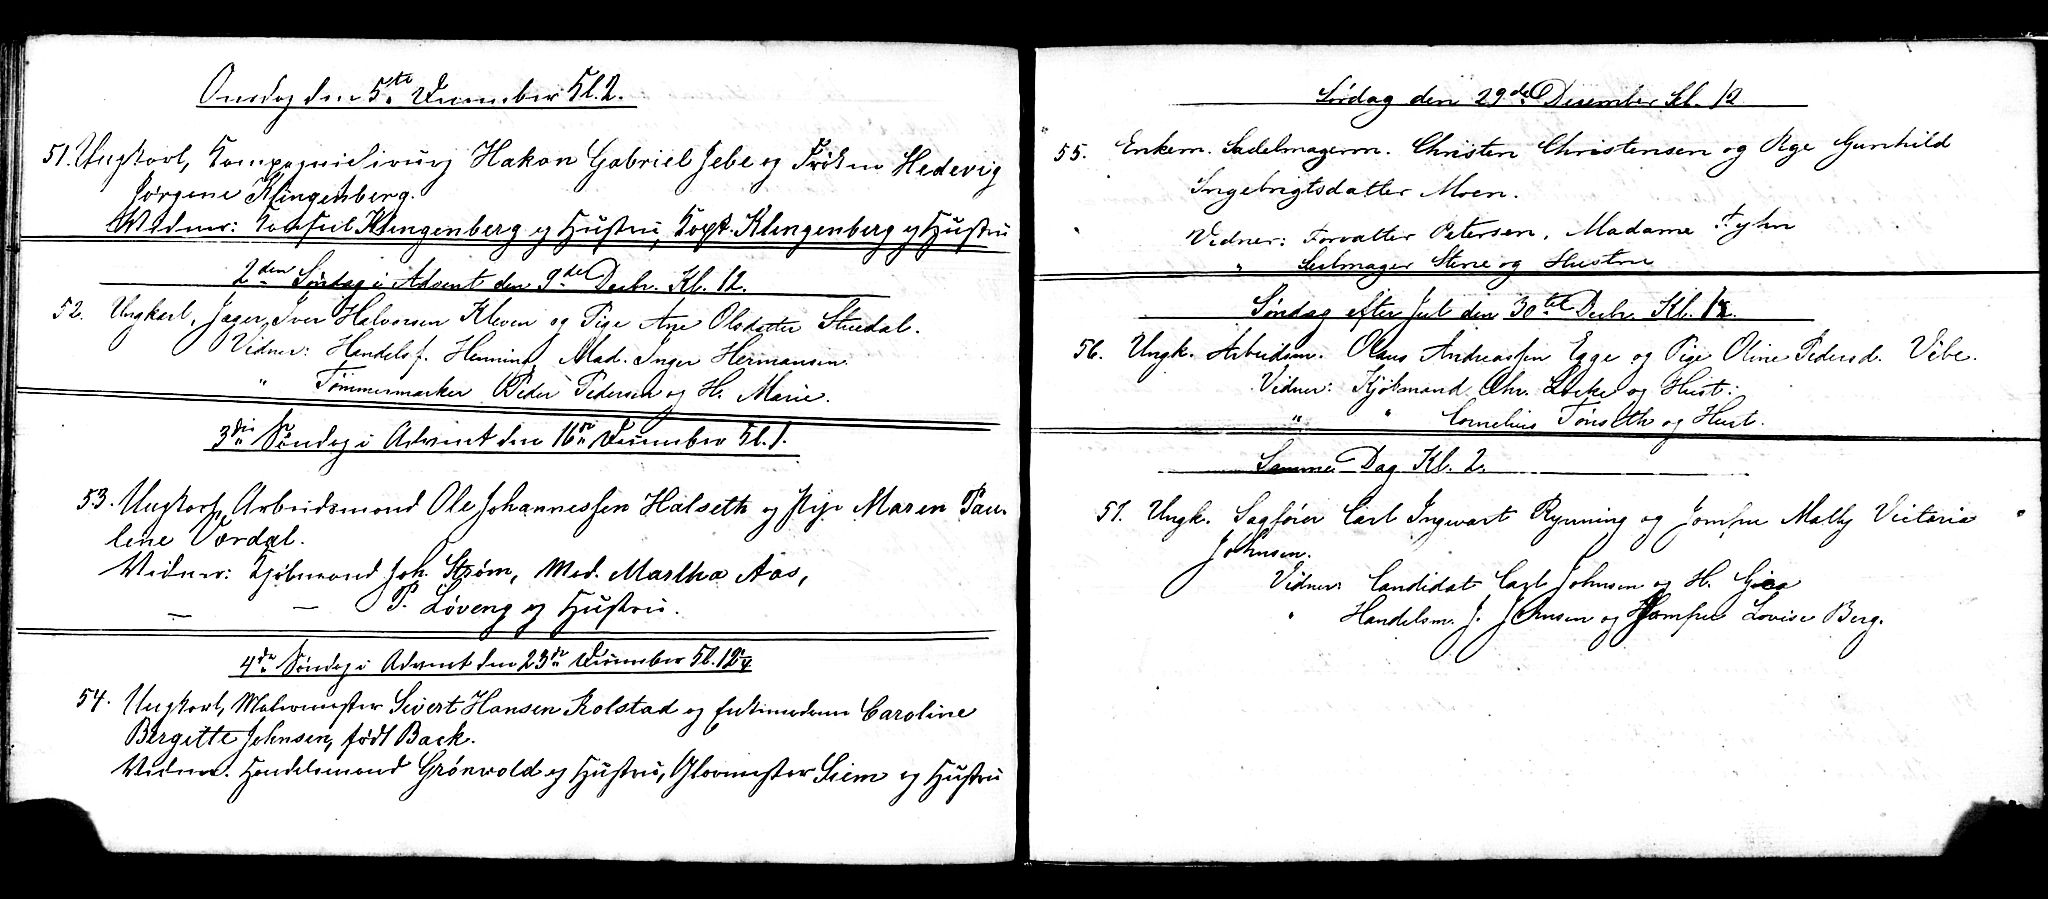 Onsdag den 5te December Kl. 2.
51. Ungkarl, Kompagnichirurg Hakon Gabriel Jebe og Frøken Hedevig
Jørgene Klingenberg.
Vidner: Konsul Klingenberg og Hustru, Kapt. Klingenberg og Hustru
2den Søndag i Advent den 9de Decbr. Kl. 12.
52. Ungkarl, Jæger, Iver Halvorsen Kleven og Pige Ane Olsdatter Stuedal.
Vidner: Handelsf. Henning, Mad. Inger Hermansen.
" Tømmermarker Peder Pedersen og H. Marie.
3die Søndag i Advent den 16de December Kl. 1.
53. Ungkarl, Arbeidsmand Ole Johannessen Halseth og Pige Maren Pau-
line Værdal.
Vidner: Kjøbmand Joh. Strøm, Mad. Martha Aas,
— — P. Løveng og Hustru.
4de Søndag i Advent den 23de December Kl.
54. Ungkarl, Malermester Sivert Hansen Rolstad og Enkemadame Caroline
Bergitte Johnsen, født Back.
Vidner. Handelsmand Grønvold og Hustru, Glarmester Siem og Hustru
Lørdag den 29de December Kl. 12
55. Enkem. Sadelmagerm. Christen Christensen og Pige Gunhild
Ingebrigtsdatter Moen.
Vidner: Forvalter Petersen, Madame Fyhn
" Seilmager Stene og Hustru
Søndag efter Jul den 30te Decbr. Kl.
56. Ungk. Arbeidsm. Olaus Andreassen Egge og Pige Oline Pedersd. Vibe.
Vidner: Kjøbmand Chr. Løcke og Hust:
" " Cornelius Tønseth og Hust.
Samme Dag Kl. 2.
57. Ungk. Sagfører Carl Ingwart Rynning og Jomfru Mally Victoria
Johnsen.
Vidner: Candidat Carl Johnsen og H.
" Handelsm. J. Johnsen og Jomfru Lovise Berg.